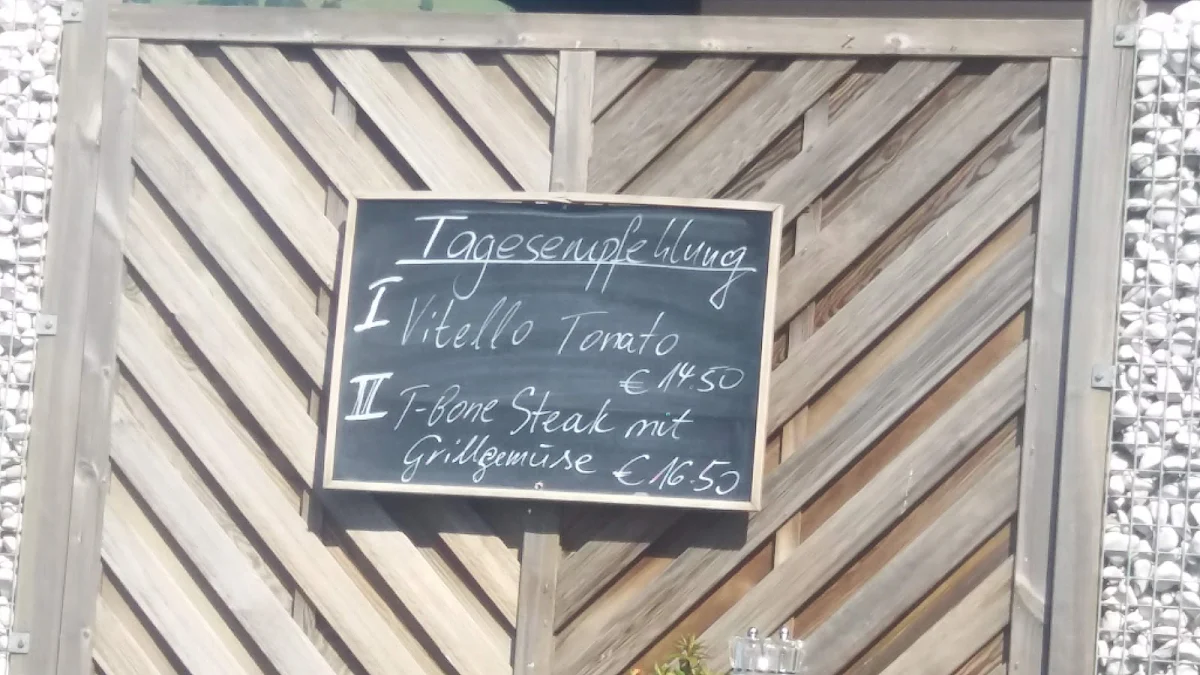 Tagesempfehlung
I Vitello Tonato
€ 14.50
II T-Bone Steak mit
Grillgemüse € 16.50